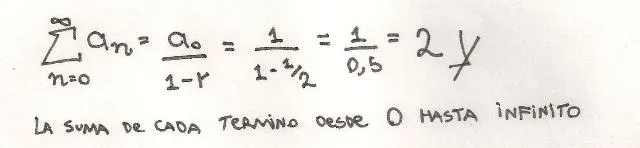 ∞
∑ aₙ = a₀/(1-r) = 1/(1-1/2) = 1/0,5 = 2 y
n=0
LA SUMA DE CADA TERMINO DESDE 0 HASTA INFINITO